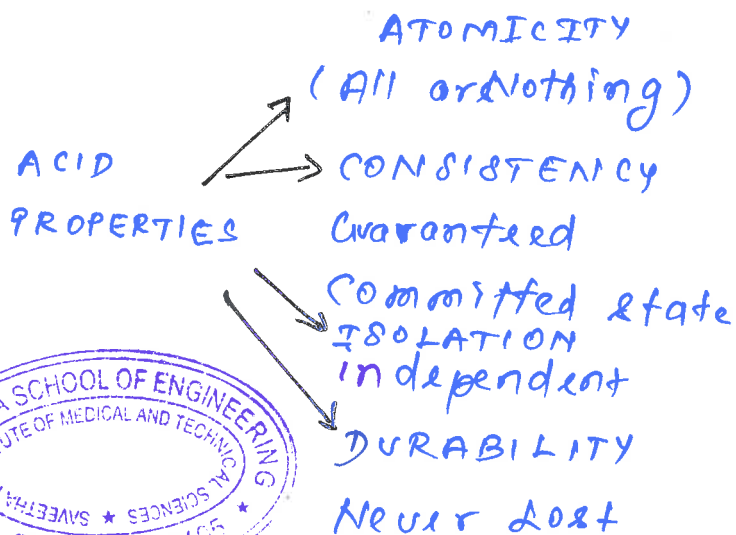 ATOMICITY
(All or Nothing)
ACID
PROPERTIES
CONSISTENCY
Guaranteed
Committed state
ISOLATION
independent
DURABILITY
Never Lost
A SCHOOL OF ENGINEERING
UTE OF MEDICAL AND TECHNICAL SCIENCES
SAVEETHA